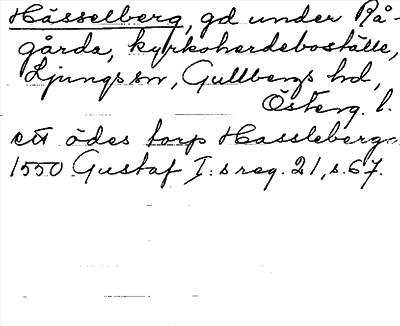 Hässelberg, gd under Rå-
gårda, kyrkoherdeboställe,
Ljungs sn, Gullbergs hd,
Österg. l.
ett ödes torp Hassleberg
1550 Gustaf I:s reg. 21, s. 67.